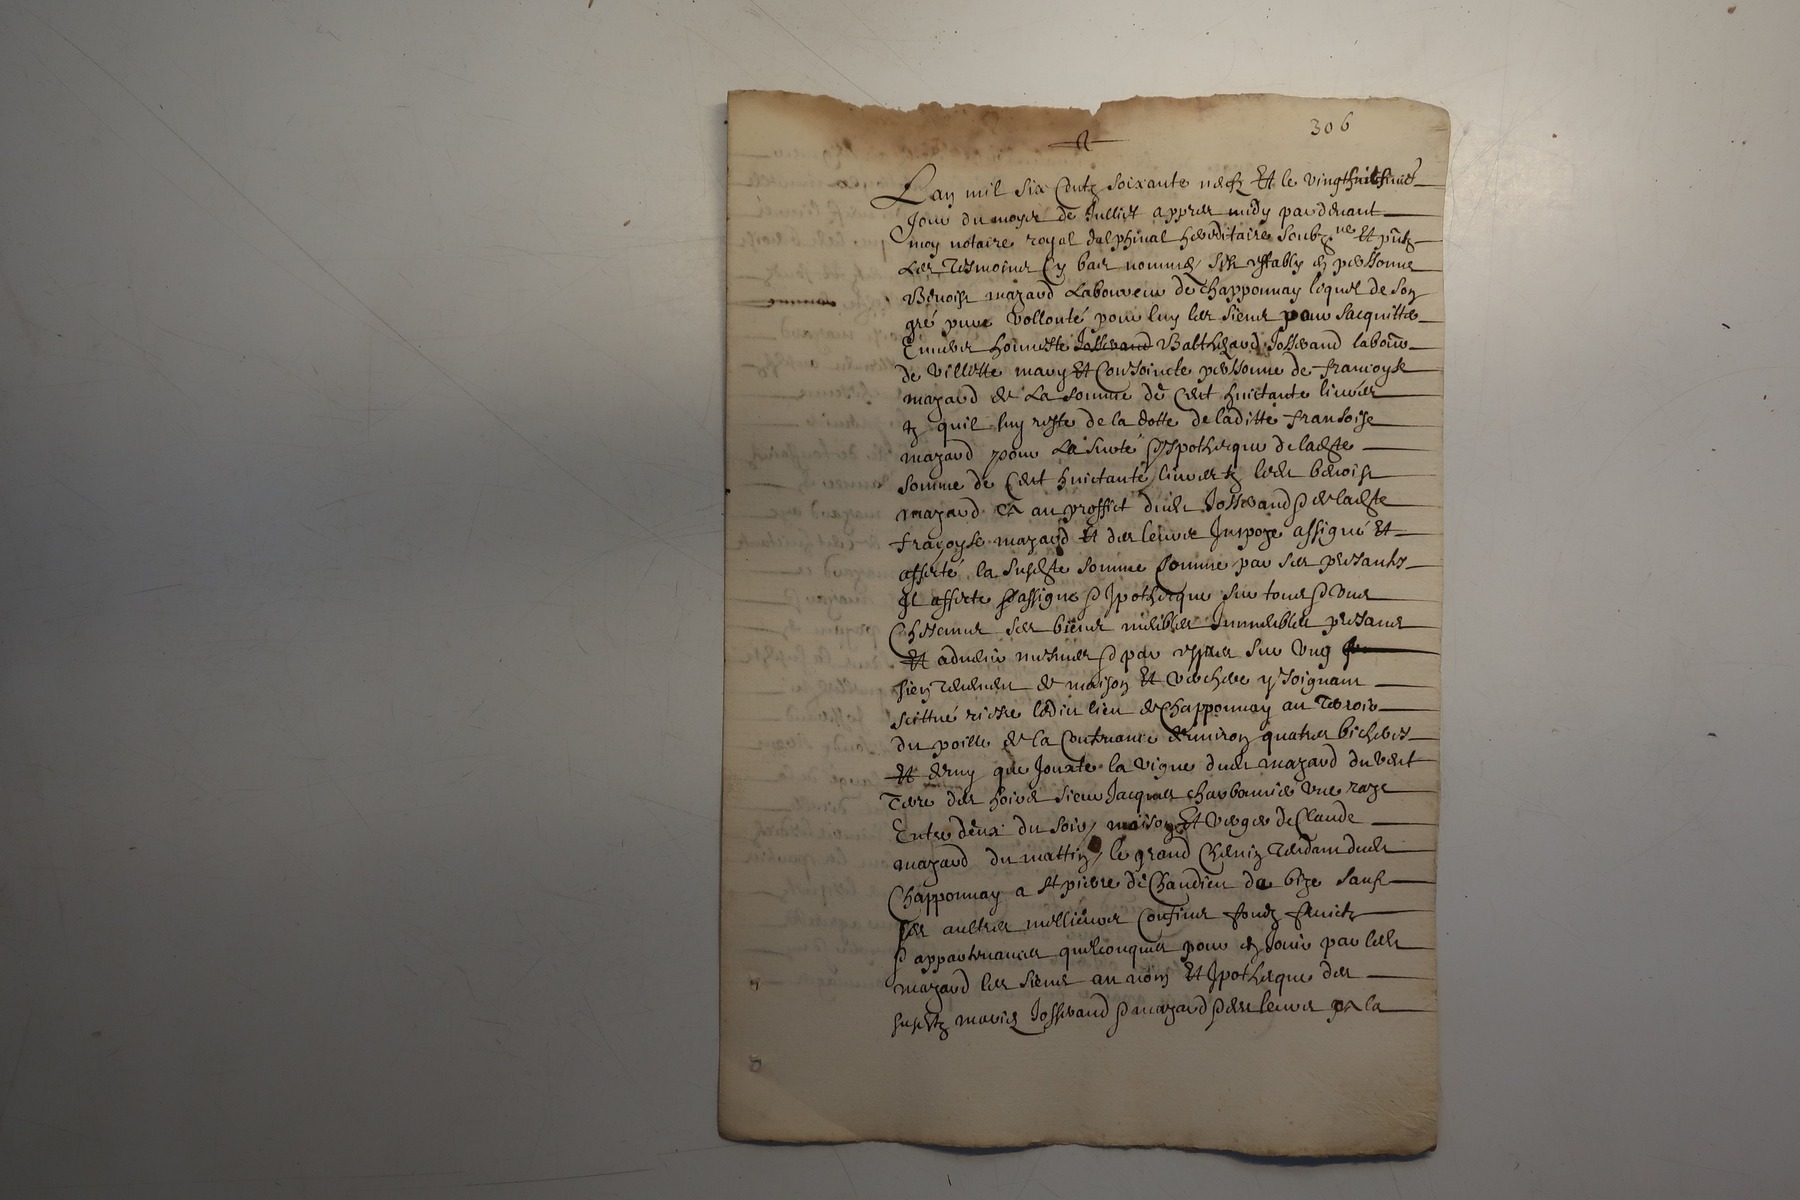 306
Lan mil six Centz soixante neufz Et le vingthuict
Jour du moys de Julliet appres midy pardevant
moy notaire royal dalphinal hereditaire soubzne Et pntz
Les Tesmoins Cy bas nommes, sest estably en personne
Benoist mazard Laboureur de Chapponnay lequel de son
gré pure vollonté pour luy les siens pour sacquitter
Envers honneste Josserand Balthezard Josserand labour
de Villette mary Et Conjoincte personne de francoyse
mazard de La somme de Cent huictante livres
tz quil luy reste de la dotte de laditte fransoise
mazard pour La surté hypothecque de ladte
somme de Cent huictante livres tz ledt benoist
mazard a au proffict dudt Josserand & de ladte
francoyse mazard Et des leurs Impoze assigné Et
affecté la susdte somme Comme par ses presantes
Il affecte & assigne & Ipothecque sur tous & Uns
Chescuns ses biens meubles Immeubles presans
Et advenir mesmes & par expres sur ung
sien tenement de maison Et verchere y Joignant
scittué riere ledict lieu de Chapponnay au Terroir
du poille de la Contenance denviron quatres bicherées
Et demy que Jouxte la vigne dudt mazard du vent
Terre des hoirs sieur Jacques charbonnier une raze
Entre deux du soir, maison Et verger de Claude
mazard du mattin, le grand Chemin Tendant dudt
Chapponnay a St pierre de Chandieu de bize sauf
ses aultres meillieurs Confins fondz fruictz
& appartenances quelconques pour en Jouir par ledt
mazard les siens au nom Et Ipothecque des
susdtz mariés Josserand & mazard & des leurs a la